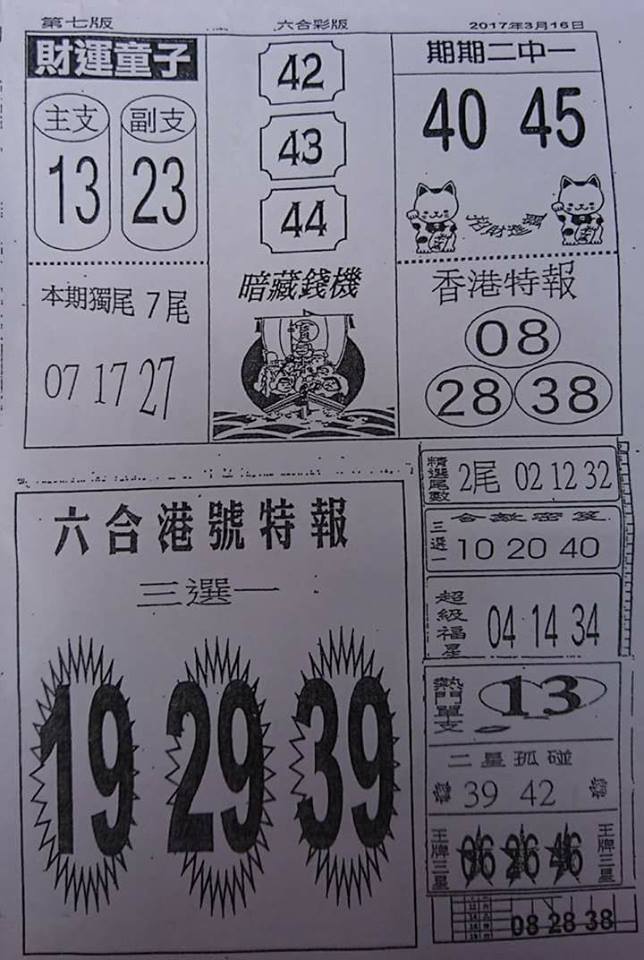 第七版
六合彩版
2017年3月16日
財運童子
主支
副支
13
23
42
43
44
期期二中一
40 45
本期獨尾 7尾
07 17 27
暗藏錢機
香港特報
08
28 38
六合港號特報
三選一
19 29 39
精選尾數
2尾 02 12 32
三選一
10 20 40
超級福星
04 14 34
熱門單支
13
二星孤碰
39 42
王牌三星
06 26 46
王牌三星
08 28 38